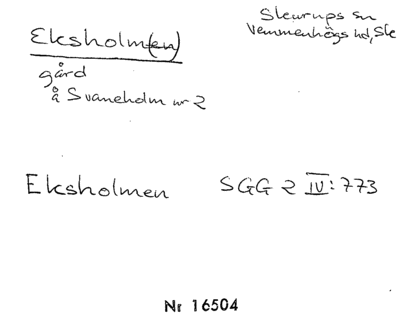 Eksholm(en)
Skurups sn
Vemmenhögs hd, Sk
gård
å Svaneholm nr 2
Eksholmen SGG 2 IV: 773
Nr 16504